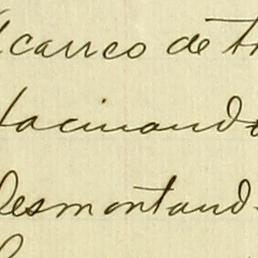 acarreo de
Hacinando
Desmontand